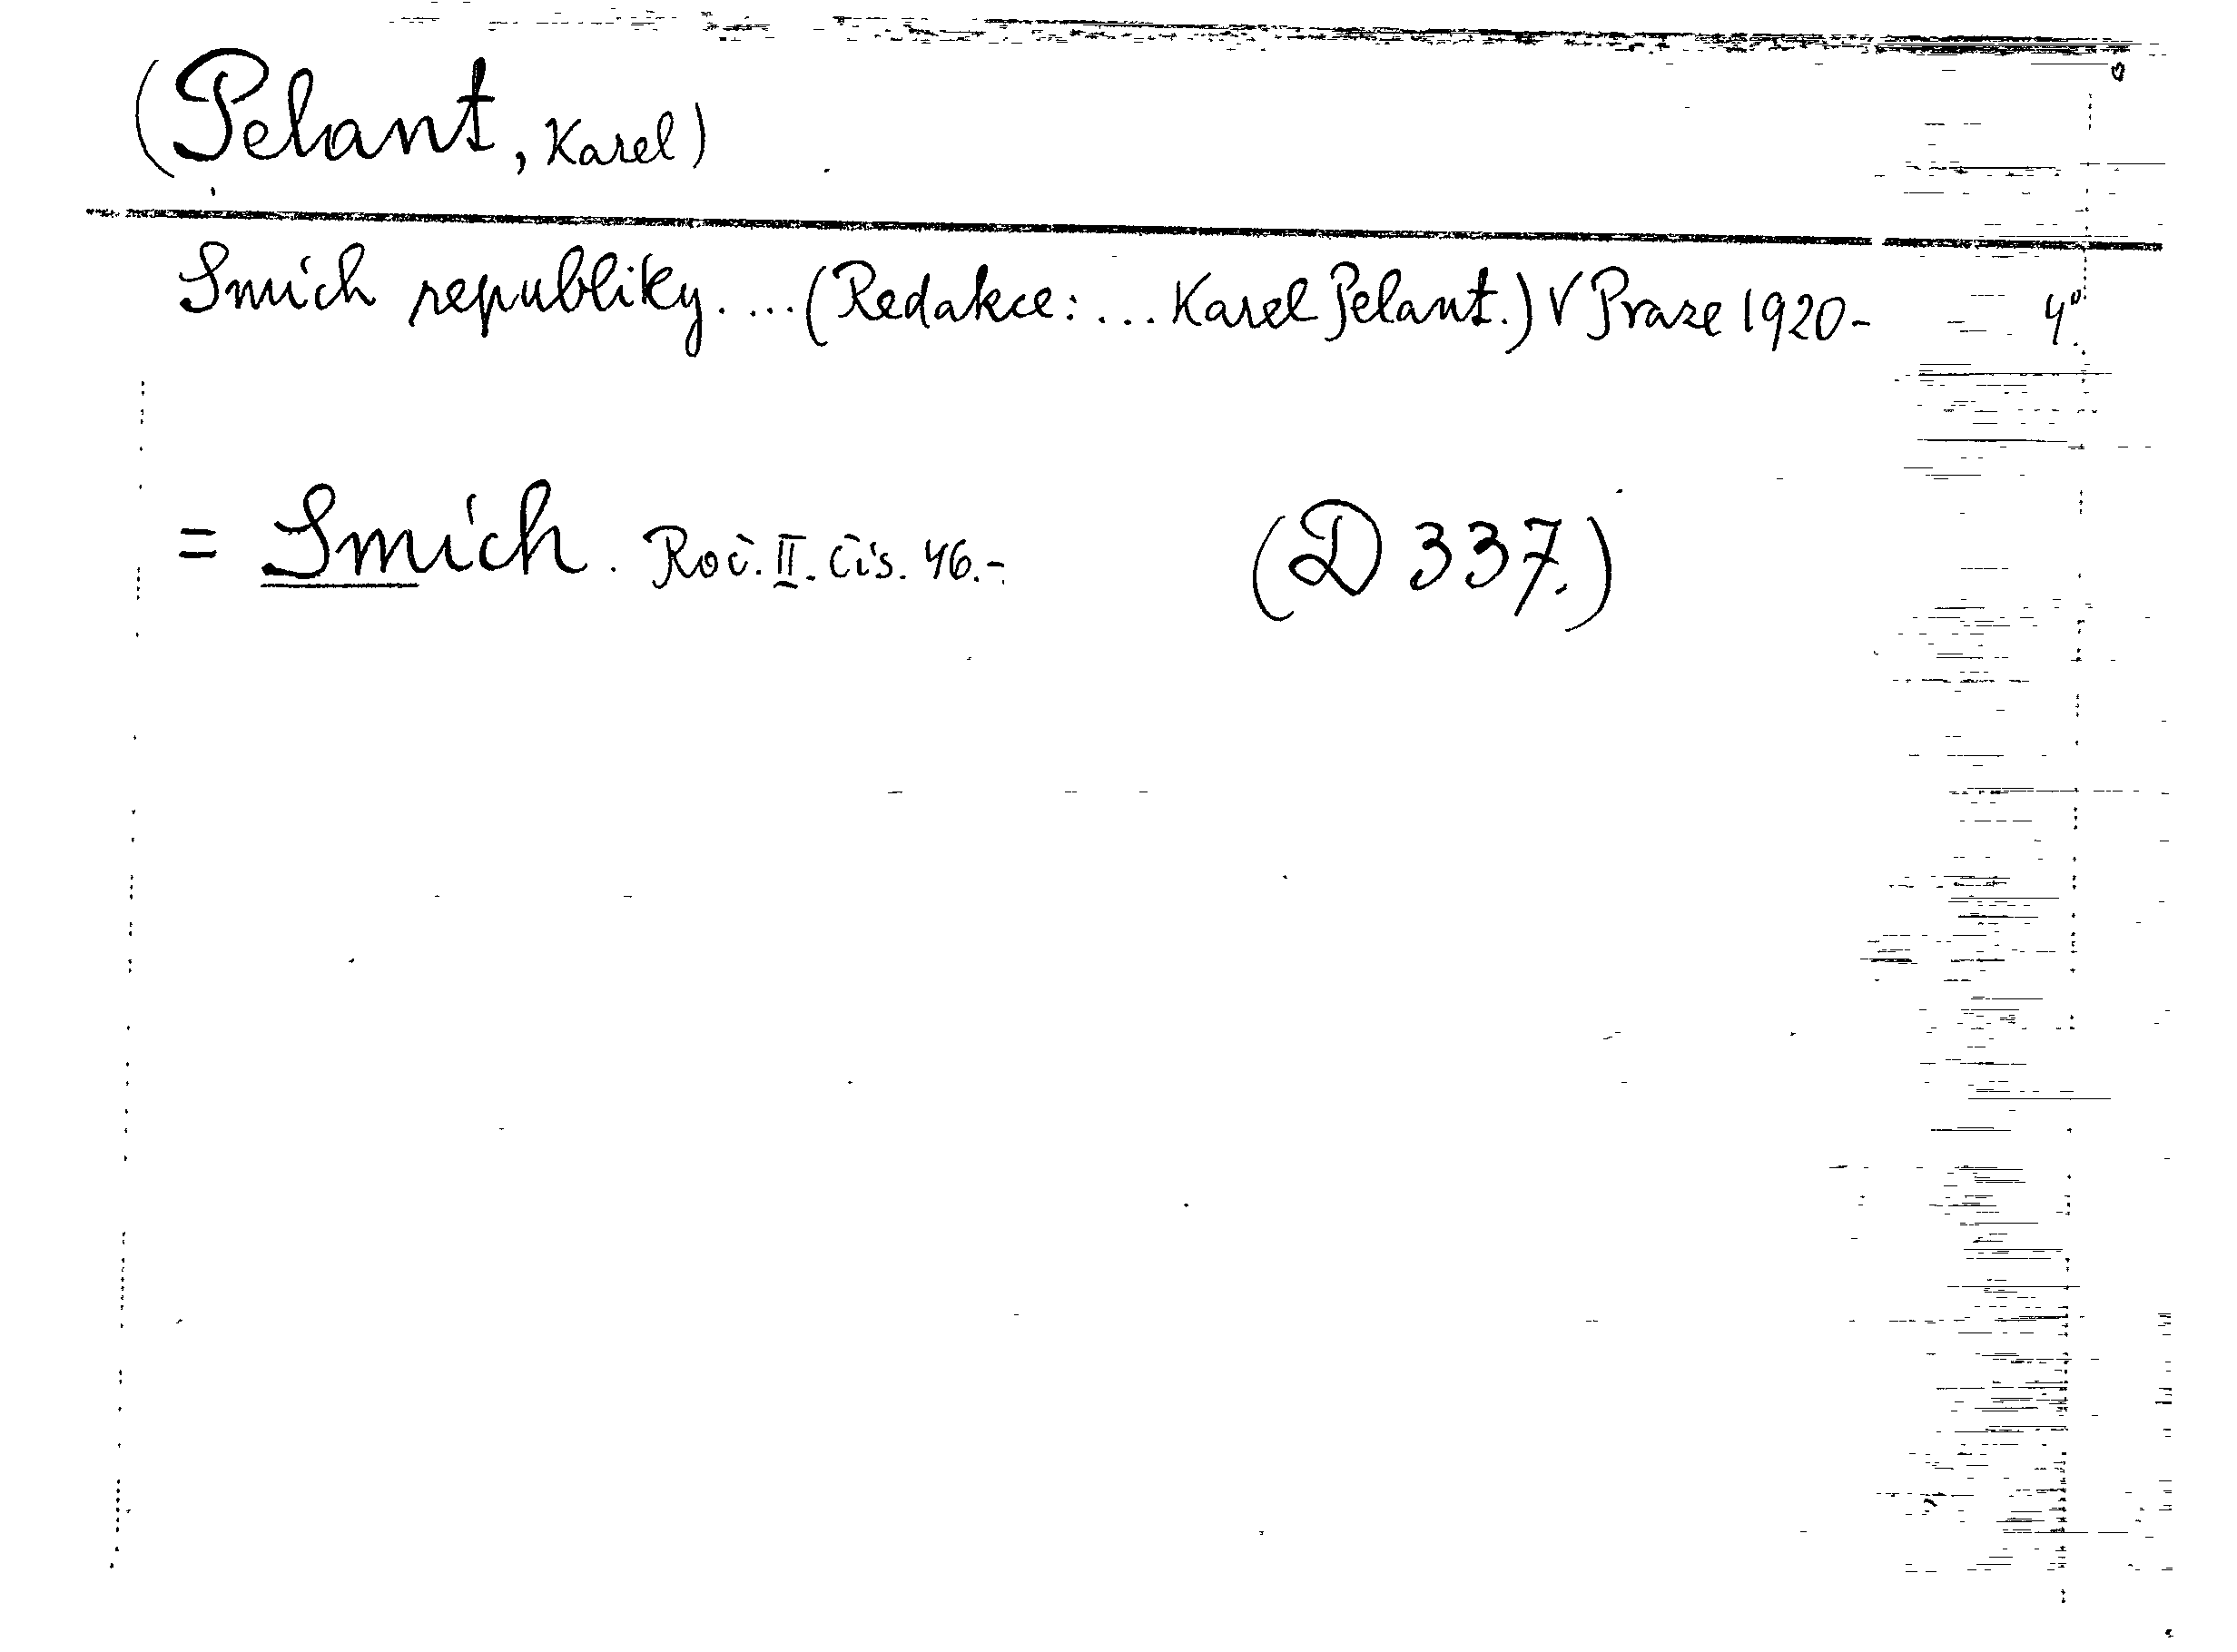 (Pelant, Karel)
Smích republiky. ... (Redakce: ... Karel Pelant.) V Praze 1920- 4°
= Smích. Roč. II. čís. 46.-
(D 337.)